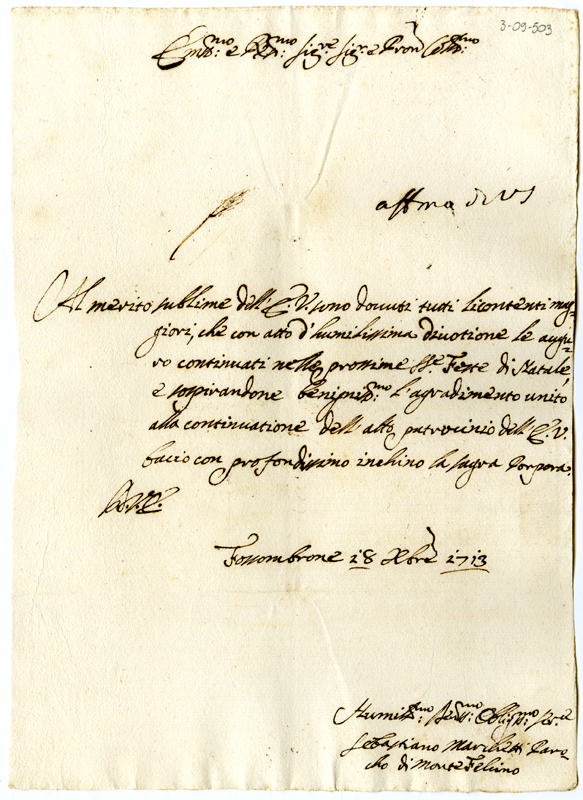 3-09-503
Em.mo e R.mo Sig.re Sig.re e Pron Coll.mo
Al merito sublime dell'E. V. sono dovuti tutti li contenti mag-
giori, che con atto d'humilissima divotione le augu-
ro continuati nelle prossime SS.e Feste di Natale,
e sospirandone benignis.mo l'agradimento unito
alla continuatione dell'alto patrocinio dell'E. V.
bacio con profondissimo inchino la sagra Porpora.
Fossombrone 18 Xbre 1713
Humilis.mo Obligs.mo
Sebastiano Marchetti Paro-
cho di Monte Felcino